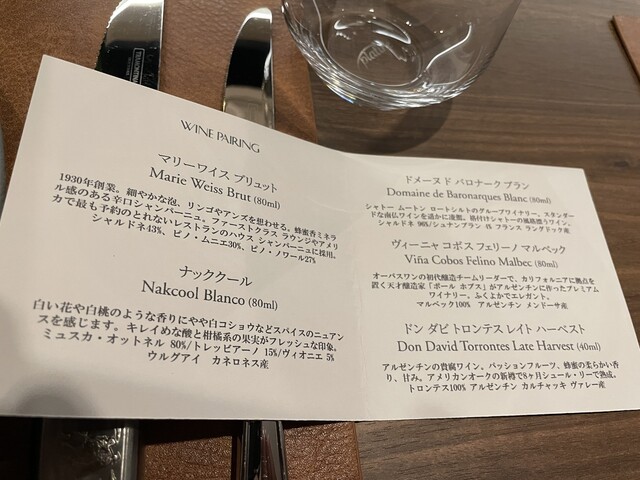 WINE PAIRING
マリーワイス ブリュット
Marie Weiss Brut (80ml)
1930年創業。細やかな泡、リンゴやアンズを想わせる。蜂蜜香ミネラ
ル感のある辛口シャンパーニュ。ファーストクラス ラウンジやアメリ
カで最も予約のとれないレストランのハウス シャンパーニュに採用。
シャルドネ43%、ピノ・ムニエ30%、ピノ・ノワール27%
ナッククール
Nakcool Blanco (80ml)
白い花や白桃のような香りにやや白コショウなどスパイスのニュアン
スを感じます。キレイめな酸と柑橘系の果実がフレッシュな印象。
ミュスカ・オットネル 80%/トレッビアーノ 15%/ヴィオニエ 5%
ウルグアイ カネロネス産
ドメーヌ ド バロナーク ブラン
Domaine de Baronarques Blanc (80ml)
シャトー ムートン ロートシルトのグループワイナリー。スタンダー
ドな南仏ワインを遥かに凌駕。格付けシャトーの風格漂うワイン。
シャルドネ 96%/シュナンブラン 4% フランス ラングドック産
ヴィーニャ コボス フェリーノ マルベック
Viña Cobos Felino Malbec (80ml)
オーパスワンの初代醸造チームリーダーで、カリフォルニアに拠点を
置く天才醸造家「ポール ホブス」がアルゼンチンに作ったプレミアム
ワイナリー。ふくよかでエレガント。
マルベック100% アルゼンチン メンドーサ産
ドン ダビ トロンテス レイト ハーベスト
Don David Torrontes Late Harvest (40ml)
アルゼンチンの貴腐ワイン。パッションフルーツ、蜂蜜の柔らかい香
り、甘み。アメリカンオークの新樽で8ヶ月シュール・リーで熟成。
トロンテス100% アルゼンチン カルチャッキ ヴァレー産